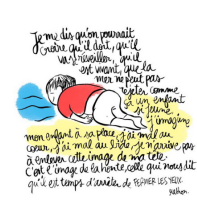 Je me dis qu'on pourrait
croire qu'il dort, qu'il
va se réveiller, qu'il
est vivant, que la
mer ne peut pas
rejeter comme
ça un enfant
si jeune.
J'imagine
mon enfant à sa place, j'ai mal au
cœur, j'ai mal au bide, je n'arrive pas
à enlever cette image de ma tête.
C'est l'image de la honte, celle qui nous dit
qu'il est temps d'arrêter de FERMER LES YEUX.